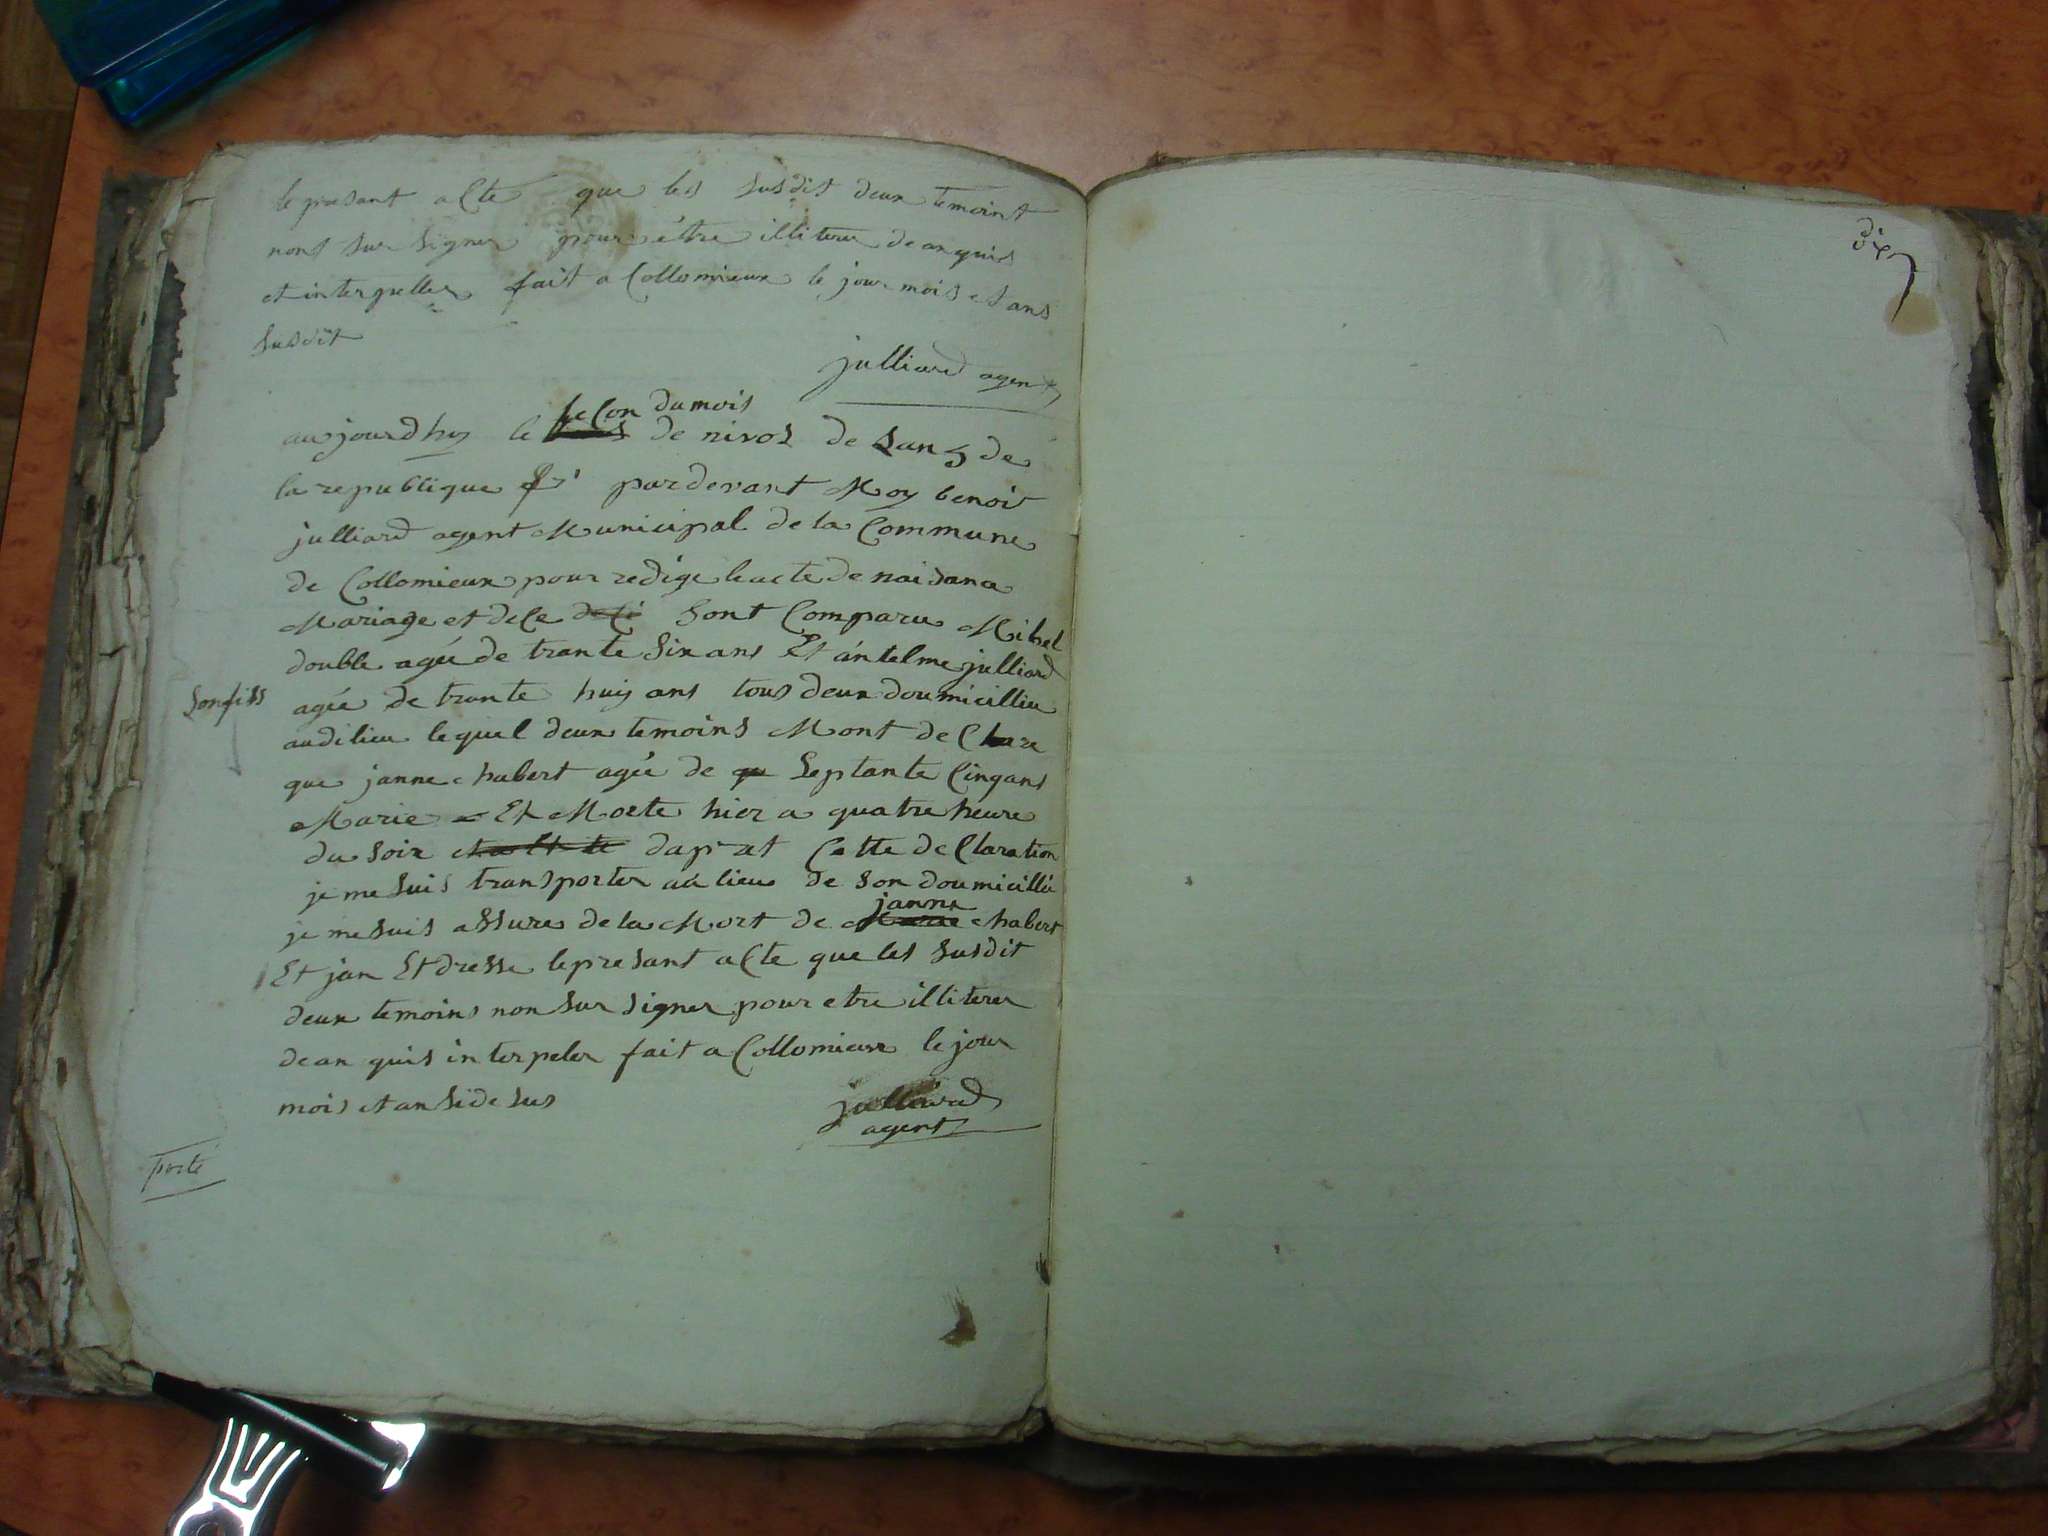 le presant aCte que les susdit deux temoint
nons sur signer pour être illiterer de an quis
et interpeller fait a Collomieux le jour mois et ans
susdit
julliard agent
seCon du mois
aujourdhuy le de nivos de lan 5 de
la republique pardevant Moy benoit
julliard agent Municipal de la Commune
de Collomieux pour redige le acte de naisance
Mariage et deCe deCi sont Comparu Mihel
double agée de trante six ans Et antelme julliard
son fils
agée de trante huij ans tous deux doumicilliu
audilieu lequiel deux temoins Mont de Clare
que janne chabert agée de septante Cinq ans
Marie Et Morte hier a quatre heure
du soir daprat Cette de Claration
je me suis transporter au lieu de son doumicillié
janne
je me suis assures de la Mort de Marie chabert
Et jan Et dresse le presant aCte que les susdit
deux temoins non sur signer pour etre illiterer
de an quis interpeler fait a Collomieux le jour
mois et an side sus
julliard
agent
porté
dix